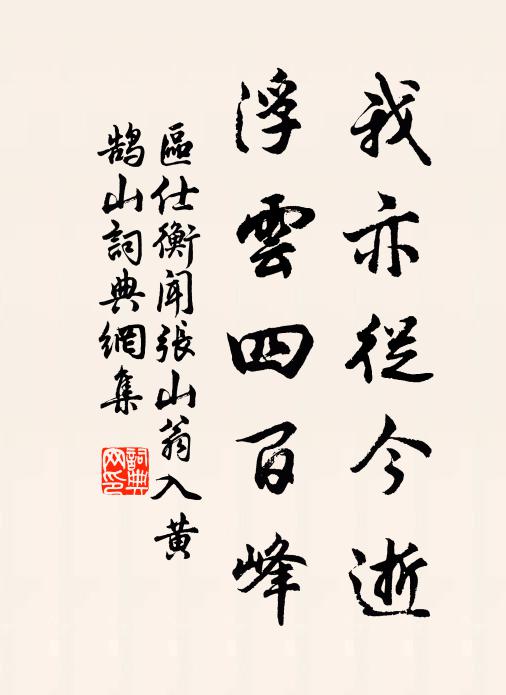 我亦從今逝
浮雲四百峰
區仕衡聞張山翁入黃
鵠山詞典網集
詞典网印